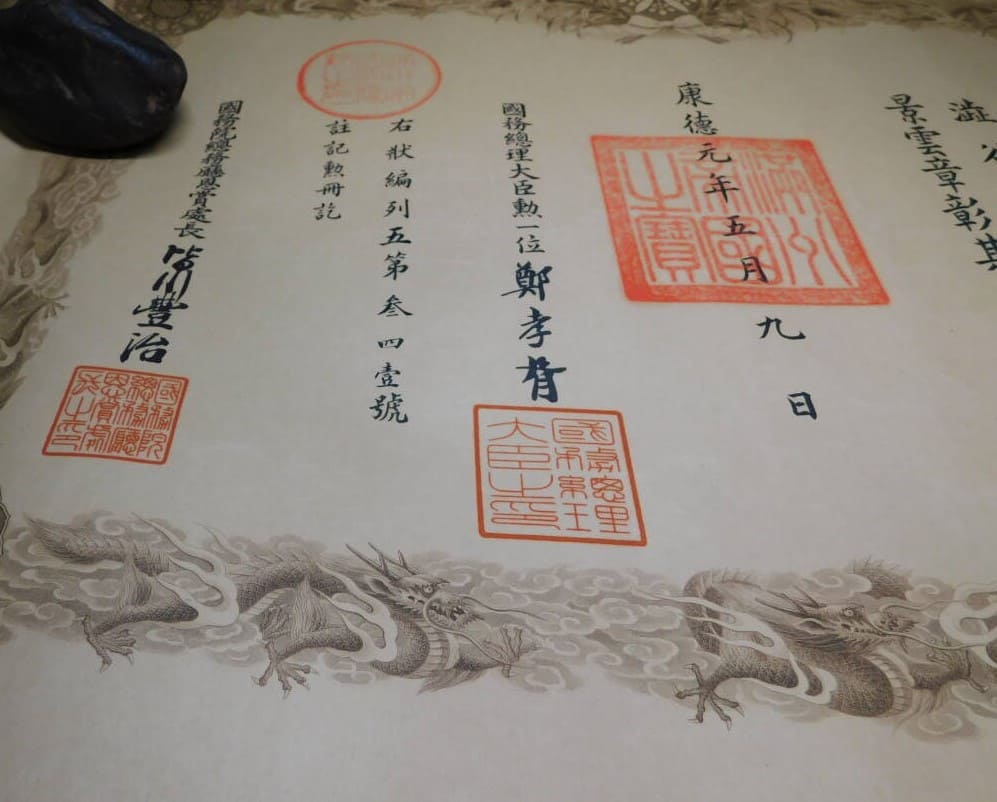 澁
景雲章彰
康德元年五月九日
滿州帝國之寶
國務總理大臣勲一位鄭孝胥
國務總理大臣之印
右狀編列五第叁四壹號
註記勲冊訖
國務院總務廳恩賞處長皆川豐治
國務院總務廳恩賞處長之印